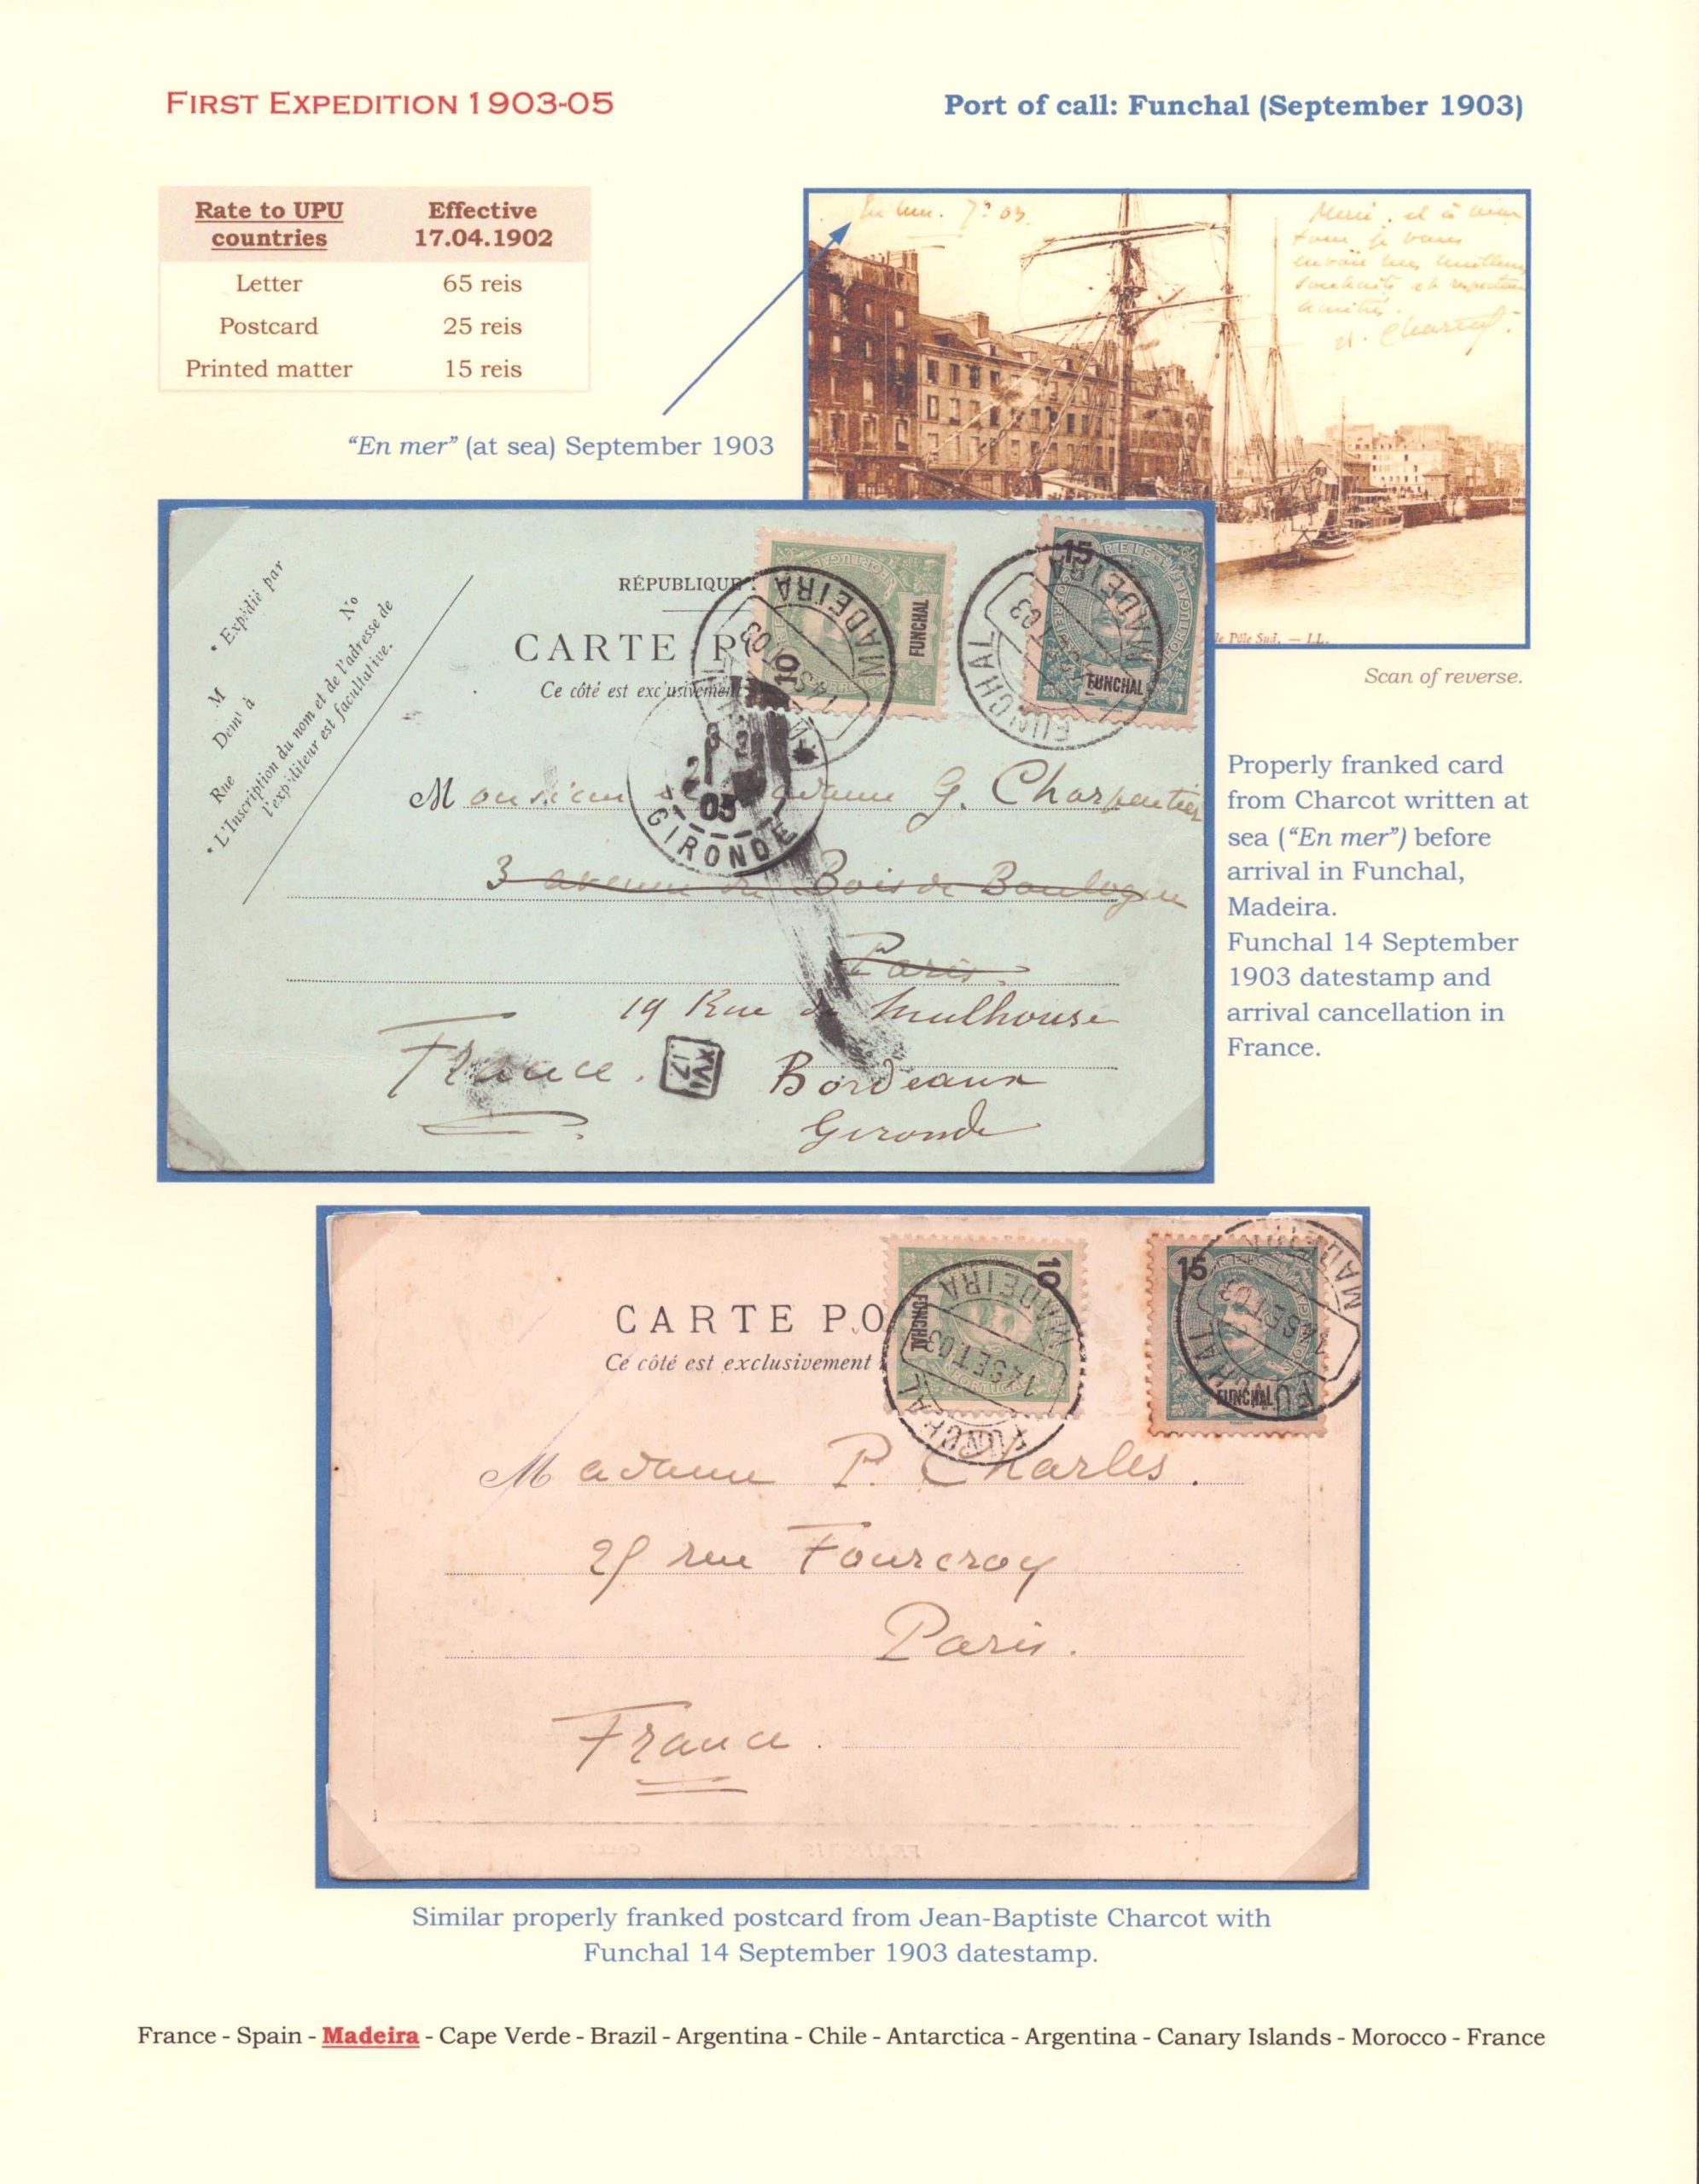 FIRST EXPEDITION 1903-05
Port of call: Funchal (September 1903)
Rate to UPU countries
Effective 17.04.1902
Letter 65 reis
Postcard 25 reis
Printed matter 15 reis
"En mer" (at sea) September 1903
En mer. 7re 03.
Merci, et à
tous je vous
envoie mes meilleurs
souhaits et
amitiés.
Charcot
le Pôle Sud. — LL.
Scan of reverse.
RÉPUBLIQUE
CARTE PO
Ce côté est exclusivement
• Expédié par
M
No
Demt à
Rue
• L'Inscription du nom et de l'adresse de
l'expéditeur est facultative.
10
FUNCHAL
PORTUGAL
MADEIRA
03
15
REIS
PORTUGAL
FUNCHAL
FUNCHAL
MADEIRA
03
2
03
GIRONDE
Monsieur et Madame G. Charpentier
3 avenue du Bois de Boulogne
Paris
19 Rue de Mulhouse
France.
XVI
17
Bordeaux
Gironde
Properly franked card
from Charcot written at
sea ("En mer") before
arrival in Funchal,
Madeira.
Funchal 14 September
1903 datestamp and
arrival cancellation in
France.
CARTE PO
Ce côté est exclusivement
10
FUNCHAL
PORTUGAL
MADEIRA
14 SET.03
FUNCHAL
15
FUNCHAL
MADEIRA
SET.03
FUNCHAL
Madame P. Charles.
25 rue Fourcroy
Paris.
France.
Similar properly franked postcard from Jean-Baptiste Charcot with
Funchal 14 September 1903 datestamp.
France - Spain - Madeira - Cape Verde - Brazil - Argentina - Chile - Antarctica - Argentina - Canary Islands - Morocco - France